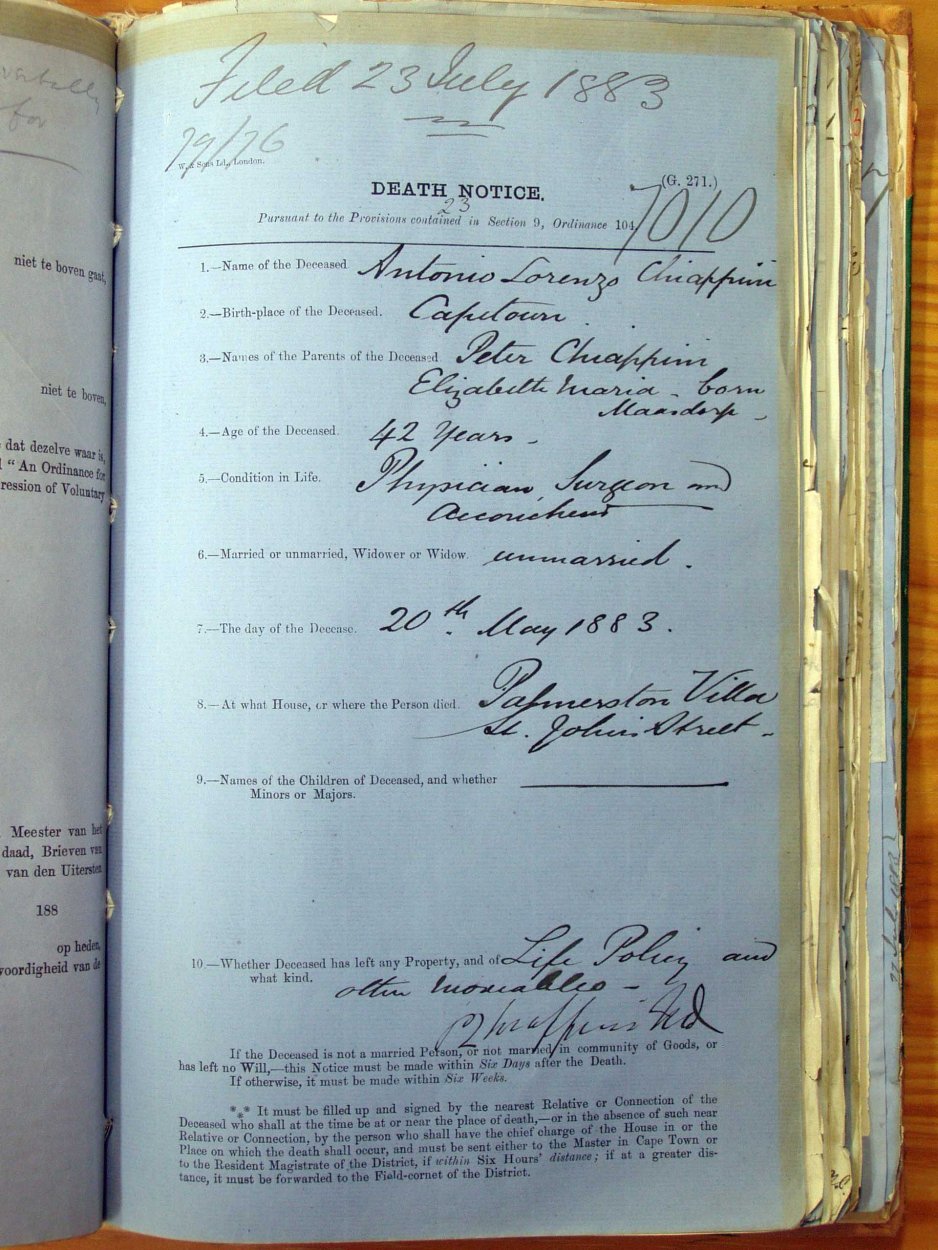 verbally
for
niet te boven gaat,
niet te boven,
dat dezelve waar is,
"An Ordinance for
ression of Voluntary
Meester van het
daad, Brieven van
van den Uitersten
188
op heden,
voordigheid van de
Filed 23 July 1883
79/76
W. & Sons Ld., London.
(G. 271.)
DEATH NOTICE.
7010
23
Pursuant to the Provisions contained in Section 9, Ordinance 104
1.—Name of the Deceased Antonio Lorenzo Chiappini
2.—Birth-place of the Deceased. Capetown
3.—Names of the Parents of the Deceased Peter Chiappini
Elizabeth Maria - born
Maasdorp -
4.—Age of the Deceased. 42 Years -
5.—Condition in Life. Physician, Surgeon and
Accoucheur
6.—Married or unmarried, Widower or Widow. unmarried.
7.—The day of the Decease. 20th May 1883.
8.—At what House, or where the Person died. Palmerston Villa
St. John's Street -
9.—Names of the Children of Deceased, and whether
Minors or Majors.
10.—Whether Deceased has left any Property, and of Life Policy and
what kind. other moveables -
If the Deceased is not a married Person, or not married in community of Goods, or
has left no Will,—this Notice must be made within Six Days after the Death.
If otherwise, it must be made within Six Weeks.
*** It must be filled up and signed by the nearest Relative or Connection of the
Deceased who shall at the time be at or near the place of death,—or in the absence of such near
Relative or Connection, by the person who shall have the chief charge of the House in or the
Place on which the death shall occur, and must be sent either to the Master in Cape Town or
to the Resident Magistrate of the District, if within Six Hours' distance; if at a greater dis-
tance, it must be forwarded to the Field-cornet of the District.